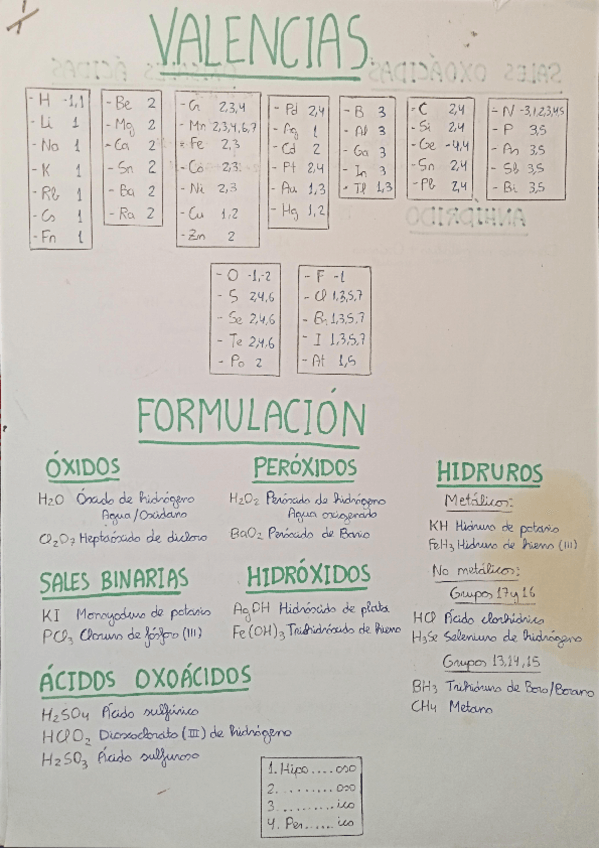 VALENCIAS
- H -1,1
- Li 1
- Na 1
- K 1
- Rb 1
- Cs 1
- Fn 1
- Be 2
- Mg 2
- Ca 2
- Sn 2
- Ba 2
- Ra 2
- Cr 2,3,4
- Mn 2,3,4,6,7
- Fe 2,3
- Co 2,3
- Ni 2,3
- Cu 1,2
- Zn 2
- Pd 2,4
- Ag 1
- Cd 2
- Pt 2,4
- Au 1,3
- Hg 1,2
- B 3
- Al 3
- Ga 3
- In 3
- Tl 1,3
- C 2,4
- Si 2,4
- Ge -4,4
- Sn 2,4
- Pb 2,4
- N -3,1,2,3,4,5
- P 3,5
- As 3,5
- Sb 3,5
- Bi 3,5
- O -1,-2
- S 2,4,6
- Se 2,4,6
- Te 2,4,6
- Po 2
- F -1
- Cl 1,3,5,7
- Br 1,3,5,7
- I 1,3,5,7
- At 1,5
FORMULACIÓN
ÓXIDOS
H2O Óxido de hidrógeno
Agua/Oxidano
Cl2O7 Heptaóxido de dicloro
PERÓXIDOS
H2O2 Peróxido de hidrógeno
Agua oxigenada
BaO2 Peróxido de Bario
HIDRUROS
Metálicos:
KH Hidruro de potasio
FeH3 Hidruro de hierro (III)
No metálicos:
Grupos 17 y 16
HCl Ácido clorhídrico
H3Se Seleniuro de hidrógeno
Grupos 13,14,15
BH3 Trihidruro de Boro/Borano
CH4 Metano
SALES BINARIAS
KI Monoyoduro de potasio
PCl3 Cloruro de fósforo (III)
HIDRÓXIDOS
AgOH Hidróxido de plata
Fe(OH)3 Trihidróxido de hierro
ÁCIDOS OXOÁCIDOS
H2SO4 Ácido sulfúrico
HClO2 Dioxoclorato (III) de hidrógeno
H2SO3 Ácido sulfuroso
1. Hipo....oso
2. ........oso
3. ........ico
4. Per......ico